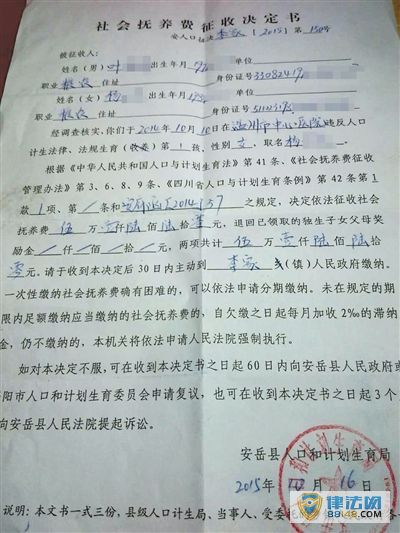 社会抚养费征收决定书
安人口征决李家[2015]第150号
被征收人:
姓名(男)叶 出生年月 单位
职业 住址 身份证号33082419
姓名(女)杨 出生年月 单位
职业 住址 身份证号511023198
经调查核实,你们于2014年10月10日在温州市中心医院违反人口
计生法律、法规生育(收养)第1孩,性别女,取名杨
根据《中华人民共和国人口与计划生育法》第41条、《社会抚养费征收
管理办法》第3、6、8、9条、《四川省人口与计划生育条例》第42条第1
款1项、第/条和 2014 137之规定,决定依法征收社会
抚养费伍万壹仟陆佰陆拾零元,退回已领取的独生子女父母奖
励金/仟/佰/拾/元,两项共计伍万壹仟陆佰陆拾
零元。请于收到本决定后30日内主动到李家(镇)人民政府缴纳。
一次性缴纳社会抚养费确有困难的,可以依法申请分期缴纳。未在规定的期
限内足额缴纳应当缴纳的社会抚养费的,自欠缴之日起每月加收2‰的滞纳
金,仍不缴纳的,本机关将依法申请人民法院强制执行。
如对本决定不服,可在收到本决定书之日起60日内向安岳县人民政府或
阳市人口和计划生育委员会申请复议,也可在收到本决定书之日起3个
向安岳县人民法院提起诉讼。
安岳县人口和计划生育局
2015年 月16日
说明:本文书一式三份,县级人口计生局、当事人、受委托
律法网
8848.com